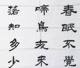 春眠不覺
啼鳥夜來
落知多少